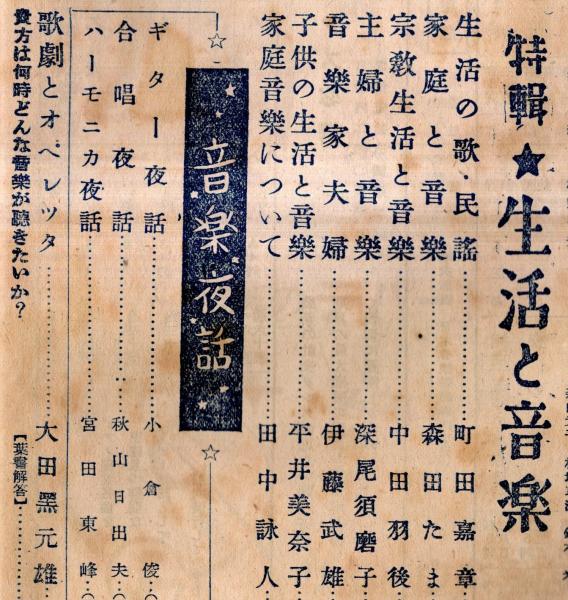 特輯★生活と音楽
生活の歌・民謠……町田嘉章
家庭と音樂……森田たま
宗教生活と音樂……中田羽後
主婦と音樂……深尾須磨子
音樂家夫婦……伊藤武雄
子供の生活と音樂……平井美奈子
家庭音樂について……田中詠人
☆音楽夜話☆
ギター夜話……小倉俊
合唱夜話……秋山日出夫
ハーモニカ夜話……宮田東峰
歌劇とオペレッタ……大田黑元雄
貴方は何時どんな音樂が聽きたいか？【葉書解答】……